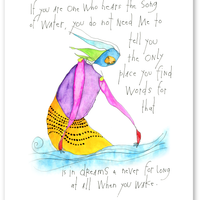 If you are One Who hears the Song
of Water, you do not Need Me to
tell you
the ONLY
place you find
Words for
that
is in dreams & never for long
at all When you Wake.